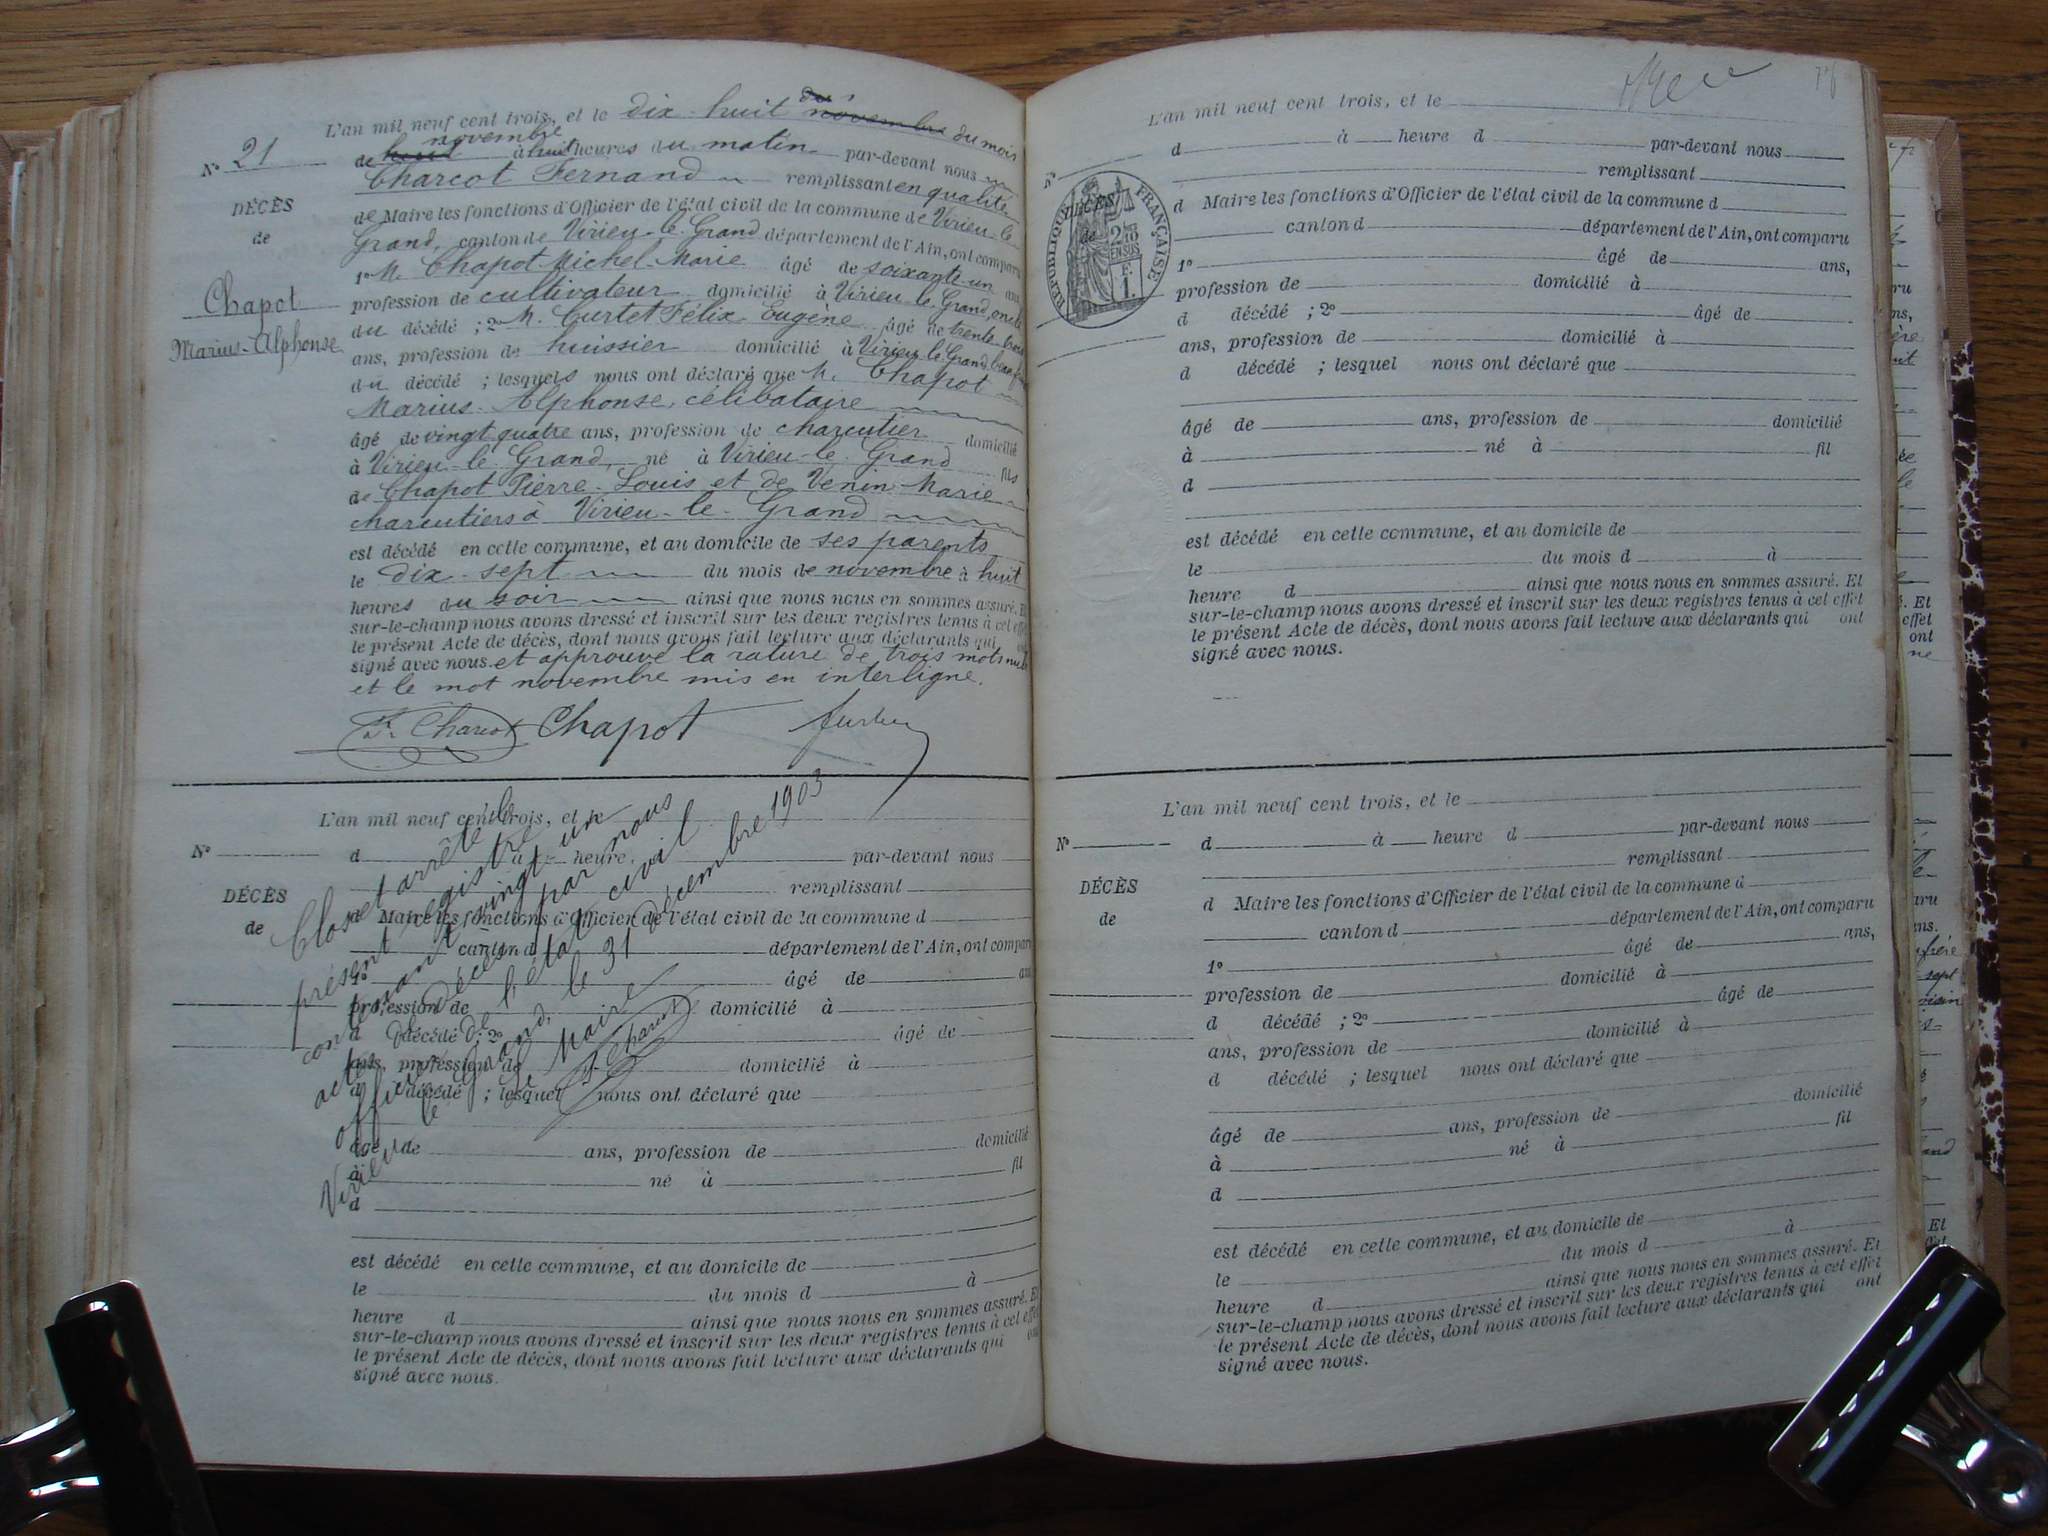 L'an mil neuf cent trois, et le dix-huit du novembre du mois
de huit novembre à huit heures du matin par-devant nous
Charcot Fernand remplissant en qualité
de Maire les fonctions d'Officier de l'état civil de la commune de Virieu-le-
Grand, canton de Virieu-le-Grand département de l'Ain, ont comparu
1º M. Chapot Michel-Marie âgé de soixante-un ans
profession de cultivateur domicilié à Virieu-le-Grand, oncle
du décédé ; 2º M. Curtet Félix Eugène âgé de trente-trois
ans, profession de huissier domicilié à Virieu-le-Grand
du décédé ; lesquels nous ont déclaré que M. Chapot
Marius-Alphonse, célibataire
âgé de vingt quatre ans, profession de charcutier domicilié
à Virieu-le-Grand, né à Virieu-le-Grand fils
de Chapot Pierre-Louis et de Venin Marie
charcutiers à Virieu-le-Grand
est décédé en cette commune, et au domicile de ses parents
le dix-sept du mois de novembre à huit
heures du soir ainsi que nous nous en sommes assuré. Et
sur-le-champ nous avons dressé et inscrit sur les deux registres tenus à cet effet
le présent Acte de décès, dont nous avons fait lecture aux déclarants qui ont
signé avec nous. et approuvé la rature de trois mots nuls
et le mot novembre mis en interligne.
Nº 21
DÉCÈS
de
Chapot
Marius-Alphonse
F. Charcot Chapot
L'an mil neuf cent trois, et le
Nº
d à heure par-devant nous
remplissant
DÉCÈS
de
d Maire les fonctions d'Officier de l'état civil de la commune d
canton d département de l'Ain, ont comparu
1º âgé de ans
profession de domicilié à
d décédé ; 2º âgé de
ans, profession de domicilié à
d décédé ; lesquel nous ont déclaré que
âgé de ans, profession de domicilié
à né à fil
d
est décédé en cette commune, et au domicile de
le du mois d à
heure d ainsi que nous nous en sommes assuré. Et
sur-le-champ nous avons dressé et inscrit sur les deux registres tenus à cet effet
le présent Acte de décès, dont nous avons fait lecture aux déclarants qui ont
signé avec nous.
Clos et arrêté le
présent registre
contenant vingt un
actes de décès par nous
officier de l'état civil
Virieu le Grand, le 31 décembre 1903
Le Maire
F. Charcot
L'an mil neuf cent trois, et le
Nº
d à heure d par-devant nous
remplissant
DÉCÈS
de
RÉPUBLIQUE FRANÇAISE
d Maire les fonctions d'Officier de l'état civil de la commune d
canton d département de l'Ain, ont comparu
1º âgé de ans,
profession de domicilié à
d décédé ; 2º âgé de
ans, profession de domicilié à
d décédé ; lesquel nous ont déclaré que
âgé de ans, profession de domicilié
à né à fil
d
est décédé en cette commune, et au domicile de
le du mois d à
heure d ainsi que nous nous en sommes assuré. Et
sur-le-champ nous avons dressé et inscrit sur les deux registres tenus à cet effet
le présent Acte de décès, dont nous avons fait lecture aux déclarants qui ont
signé avec nous.
L'an mil neuf cent trois, et le
Nº
d à heure d par-devant nous
remplissant
DÉCÈS
de
d Maire les fonctions d'Officier de l'état civil de la commune d
canton d département de l'Ain, ont comparu
1º âgé de ans,
profession de domicilié à
d décédé ; 2º âgé de
ans, profession de domicilié à
d décédé ; lesquel nous ont déclaré que
âgé de ans, profession de domicilié
à né à fil
d
est décédé en cette commune, et au domicile de
le du mois d à
heure d ainsi que nous nous en sommes assuré. Et
sur-le-champ nous avons dressé et inscrit sur les deux registres tenus à cet effet
le présent Acte de décès, dont nous avons fait lecture aux déclarants qui ont
signé avec nous.